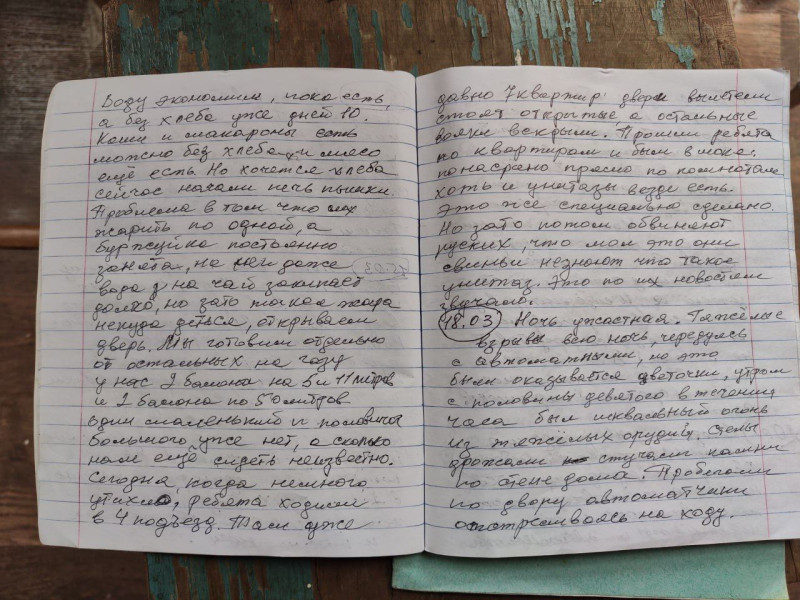 Воду экономим, пока есть,
а без хлеба уже дней 10.
Каши и макароны есть
можно без хлеба, и мясо
ещё есть. Но хочется хлеба
сейчас начали печь пышки.
Проблема в том что их
жарить по одной, а
буржуйка постоянно
занята, на ней даже
вода на чай закипает
долго, но зато такая жара
некуда деться, открываем
дверь. Мы готовим отдельно
от остальных на газу
у нас 2 балона на 5 и 11 литров
и 2 балона по 50 литров
один маленький и половины
большого уже нет, а сколько
нам ещё сидеть неизвестно.
Сегодня, когда немного
утихло, ребята ходили
в 4 подъезд. Там уже
давно 7 квартир двери вылетели
стоят открытые, а остальные
вояки вскрыли. Прошли ребята
по квартирам и были в шоке:
понасрано прямо по комнатам
хоть и унитазы везде есть.
Это же специально сделано.
Но зато потом обвиняют
руских, что мол это они
свиньи незнают что такое
унитаз. Это по их новостям
звучало.
18.03 Ночь ужастная. Тяжёлые
взрывы всю ночь, чередуясь
с автоматными, но это
были оказывается цветочки, утром
с половины девятого в течении
часа был шквальный огонь
из тяжёлых орудий. Стены
дрожали стучали камни
по стене дома. Пробегали
по двору автоматчики
отстреливаясь на ходу.